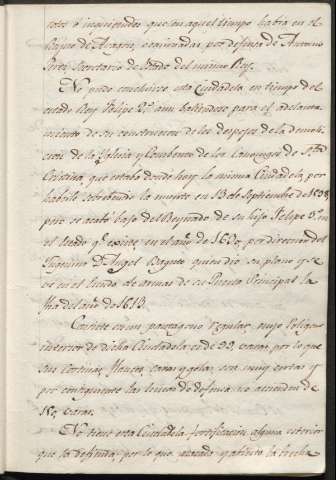 rotos é inquietudes que en aquel tiempo habia en el
Reyno de Aragon, ocasionadas por defensa de Antonio
Perez Secretario de Estado del mismo Rey.
No pudo concluirse esta Ciudadela en tiempo del
citado Rey Felipe 2º aun haviendose para el adelanta
miento de su construccion de los despojos de la demoli
cion de la Yglesia y Combento de los Canonigos de Sta
Cristina, que estaba donde hoy la misma Ciudadela, por
haberle la muerte en 13 de Septiembre de 1598,
pero se acabó bajo del Reynado de su hijo Felipe 3º en
el estado qe existe, en el año de 1620, por direccion del
Yngeniero Dn Angel Bagute quien dio su plano y se
ve en el de armas de su Puerta Principal la
fha del año de 1613.
Consiste en un pentagono regular, cuyo Poligono
interior de dicha Ciudadela es de 22, varas, por lo que
sus cortinas, flancos, caras y golas, son muy cortas y
por consiguiente las lineas de defensa no exceden de
187, varas.
No tiene esta Ciudadela fortificacion alguna exterior
que la defienda, por lo que atacado y abierto la brecha